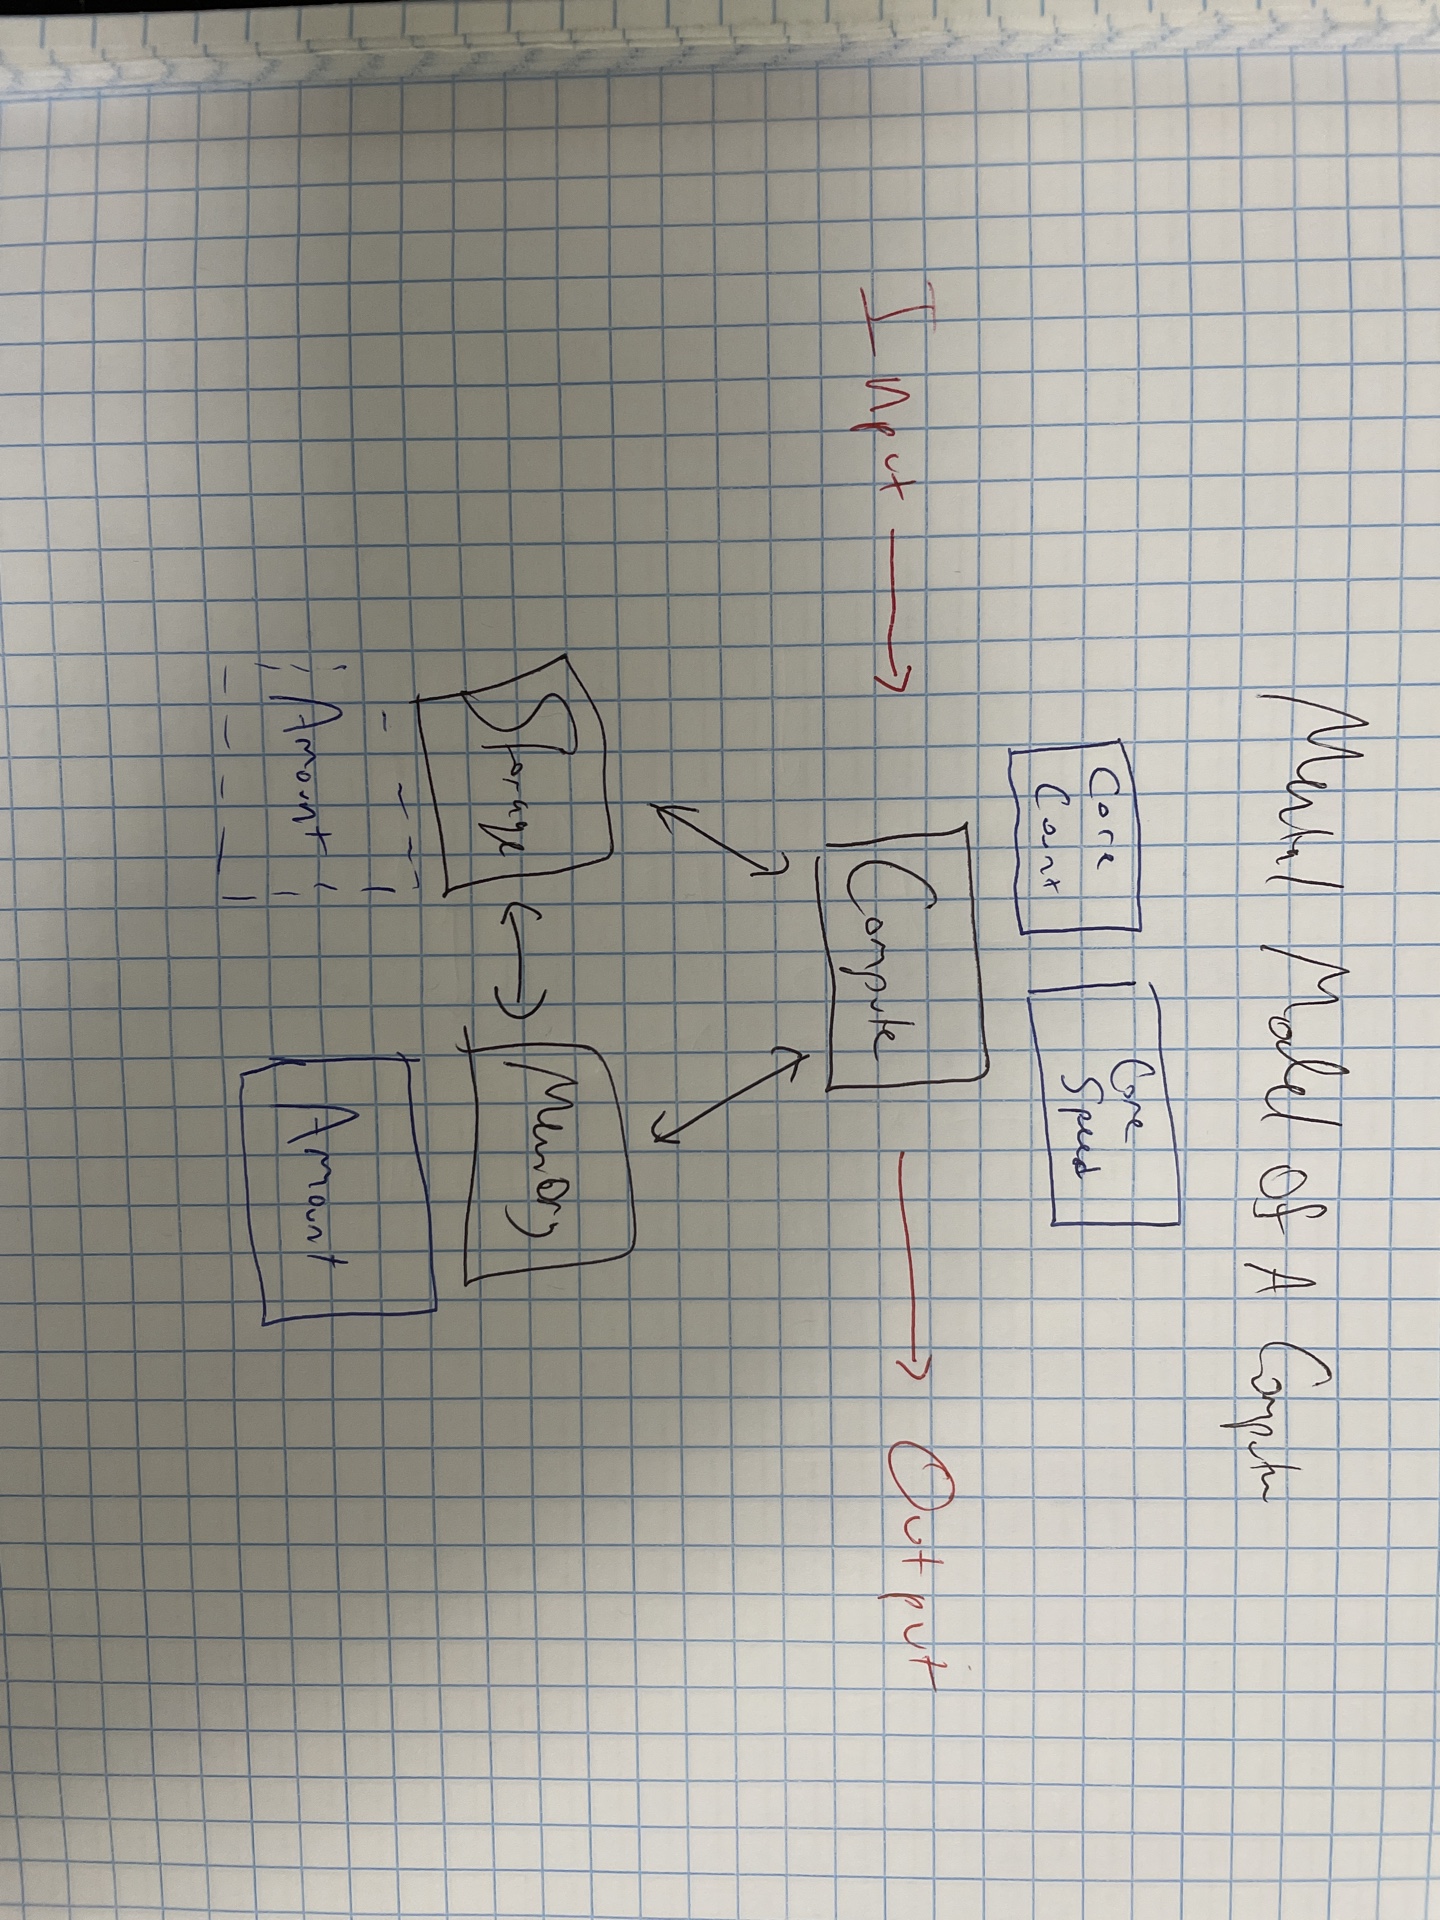 Mental Model Of A Computer
Core
Count
Core
Speed
Input
Compute
Output
Storage
Memory
Amount
Amount